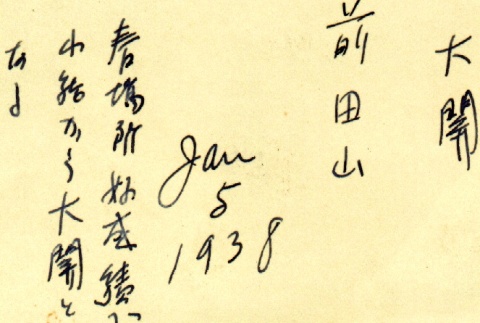 大関
前田山
Jan
5
1938
春場所好成績に
小結から大関と
なる